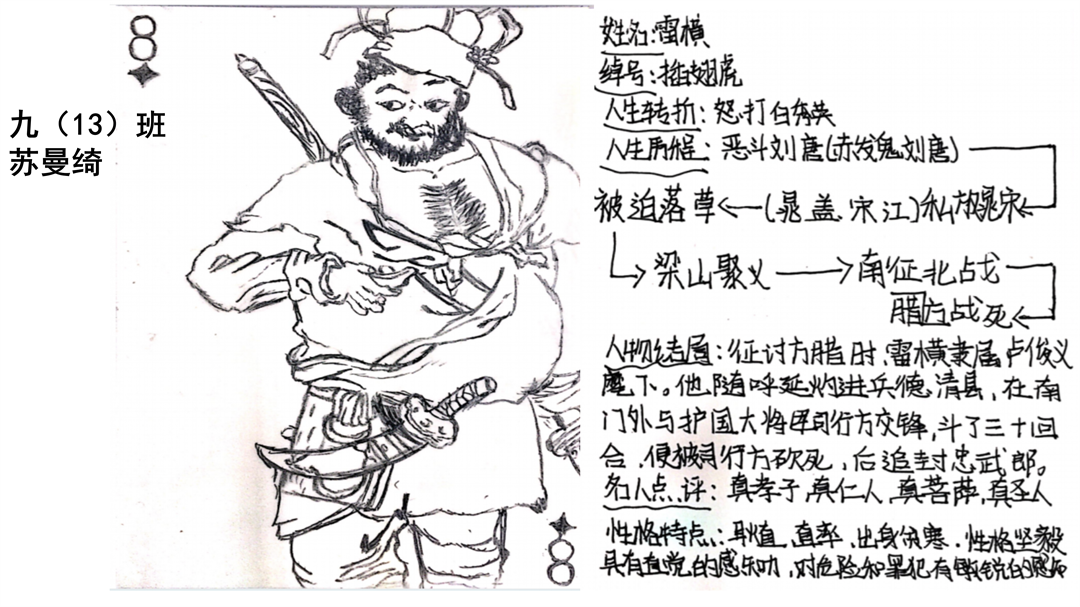 8
九（13）班
苏曼绮
姓名:雷横
绰号:插翅虎
人生转折:怒打白秀英
人生历程:恶斗刘唐(赤发鬼刘唐)
被迫落草←(晁盖、宋江)私放晁宋
梁山聚义→南征北战
腊月战死
人物结局:征讨方腊时,雷横隶属卢俊义
麾下。他随呼延灼进兵德清县,在南
门外与护国大将军司行方交锋,斗了三十回
合,便被司行方砍死,后追封忠武郎。
名人点评:真孝子,真仁人,真菩萨,真圣人
性格特点:耿直,直率,出身贫寒.性格坚毅
具有直觉的感知力,对危险和罪犯有敏锐的感知
8